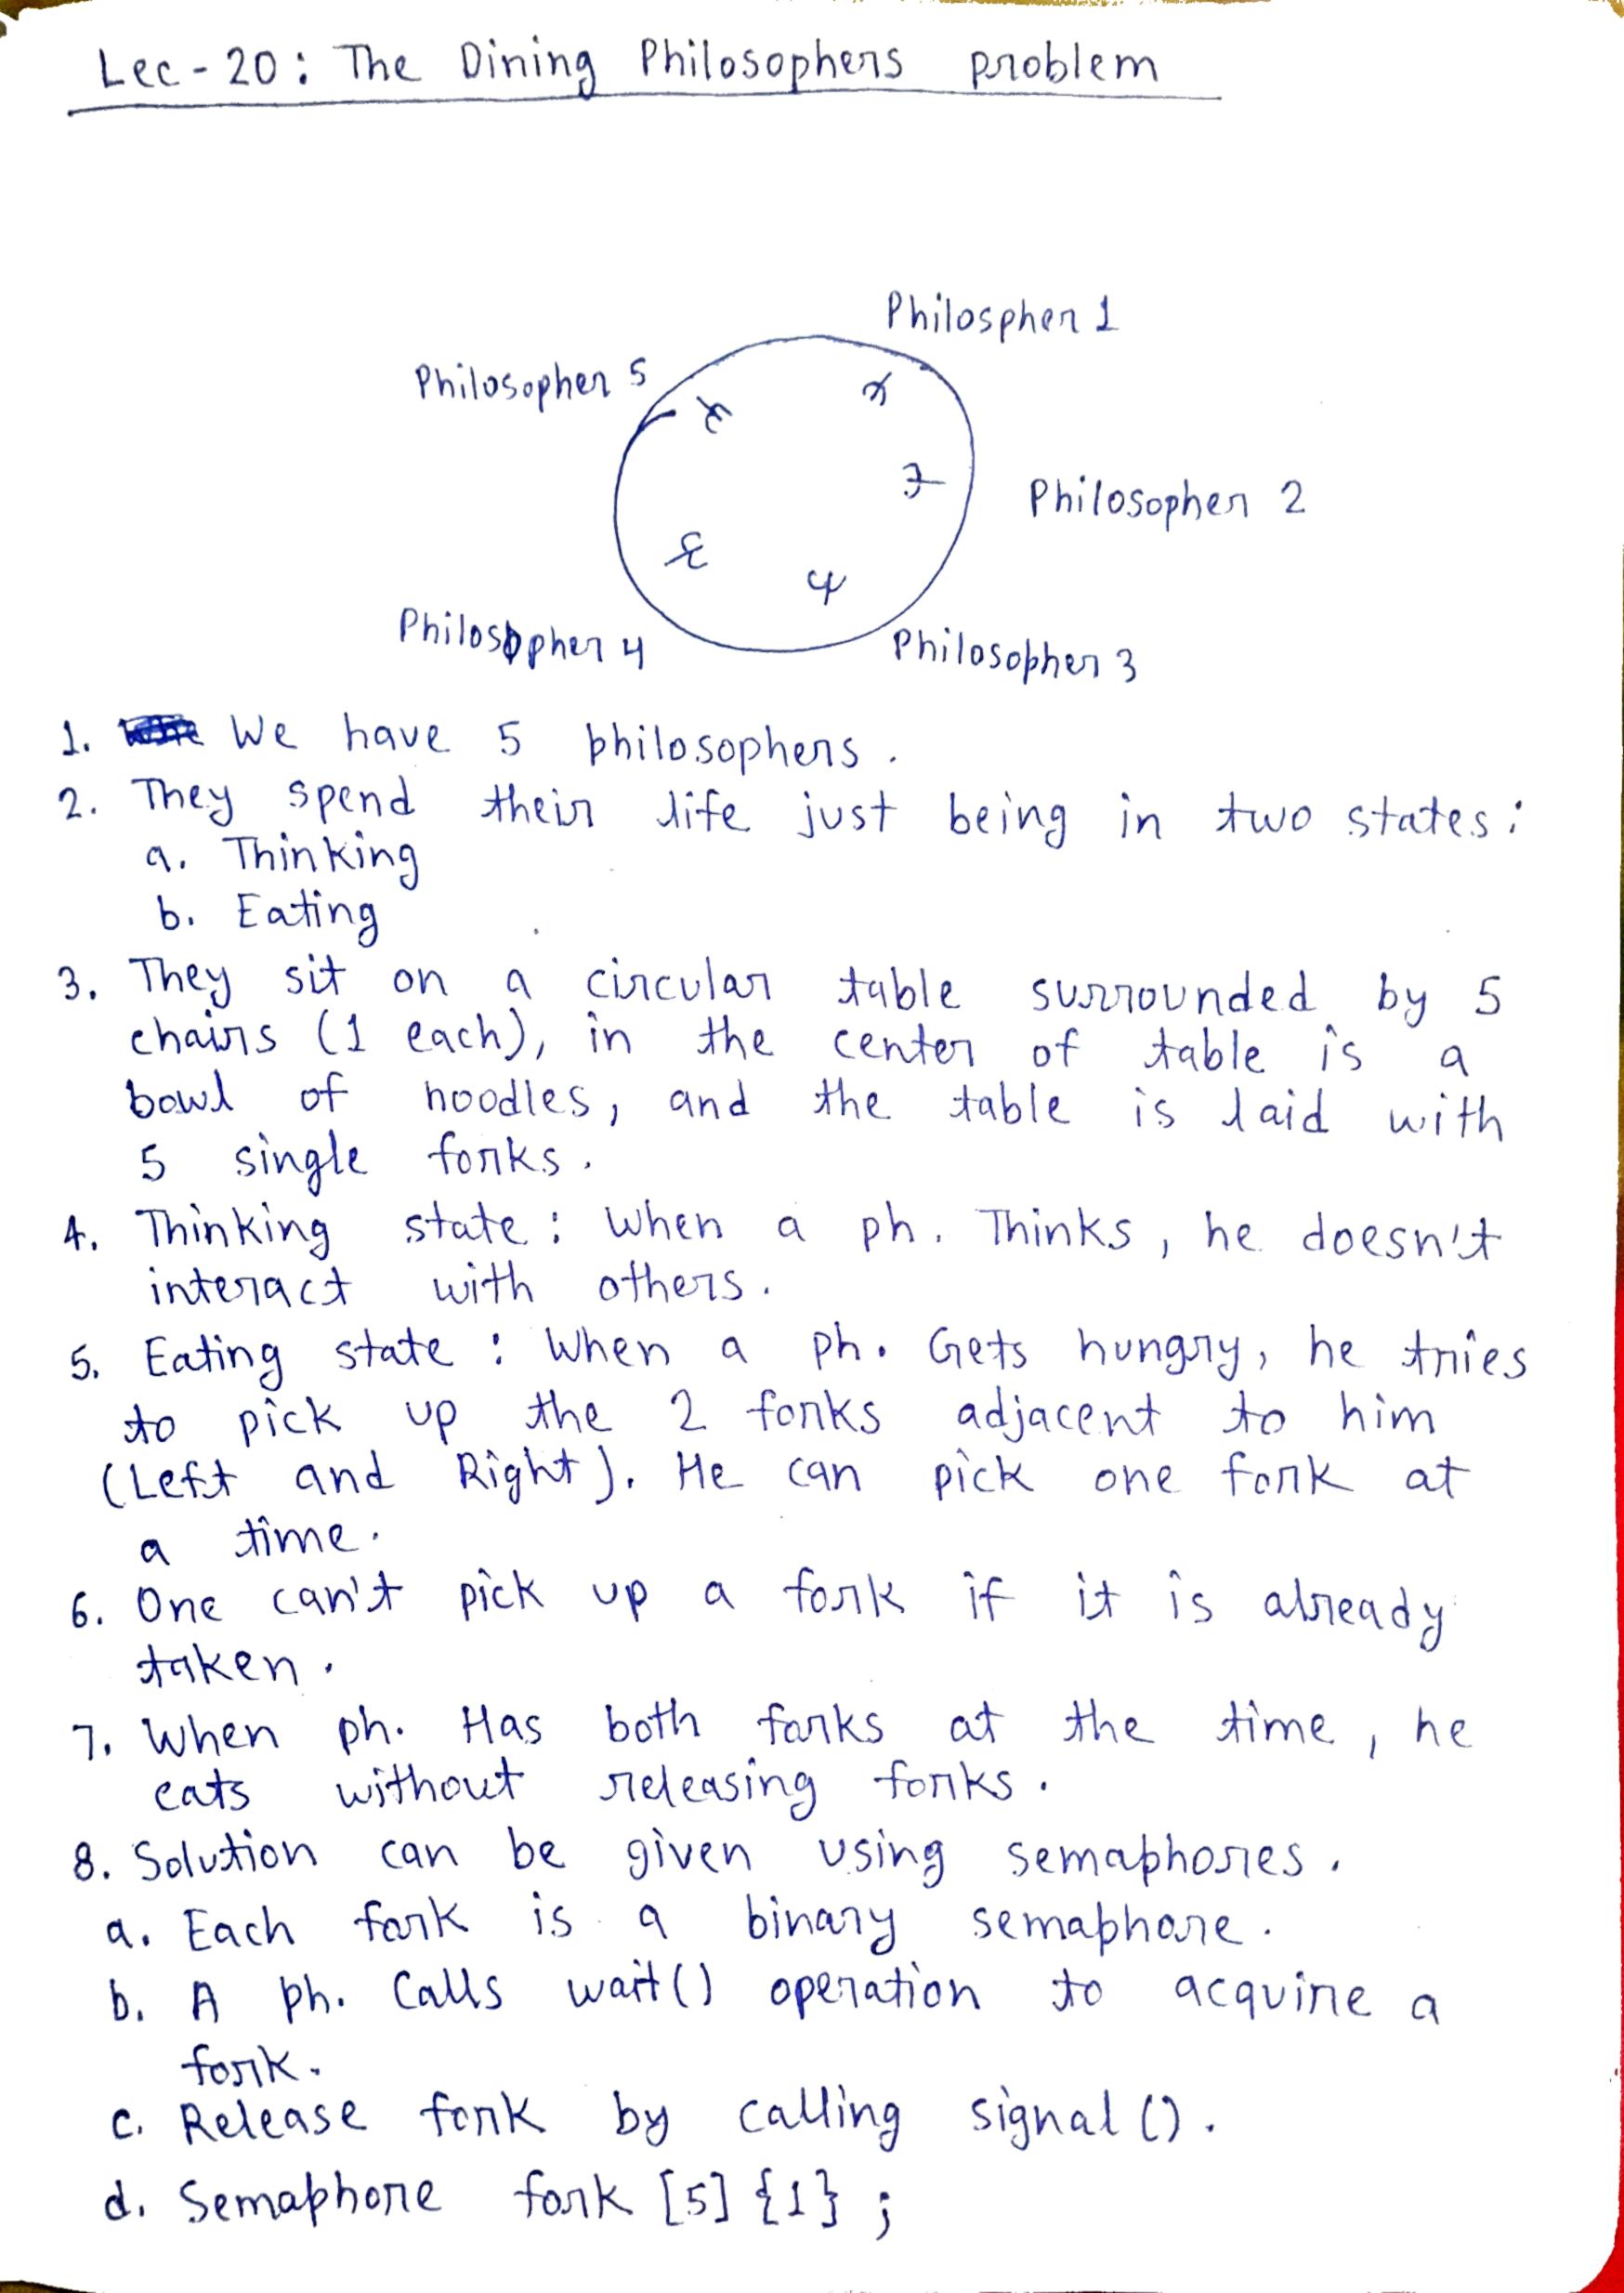 Lec-20: The Dining Philosophers problem
Philospher 1
Philosopher 5
Philosopher 2
Philosopher 4
Philosopher 3
1. We have 5 philosophers.
2. They spend their life just being in two states:
a. Thinking
b. Eating
3. They sit on a circular table surrounded by 5
chairs (1 each), in the center of table is a
bowl of noodles, and the table is laid with
5 single forks.
4. Thinking state: When a ph. Thinks, he doesn't
interact with others.
5. Eating state: When a ph. Gets hungry, he tries
to pick up the 2 forks adjacent to him
(Left and Right). He can pick one fork at
a time.
6. One can't pick up a fork if it is already
taken.
7. When ph. Has both forks at the time, he
eats without releasing forks.
8. Solution can be given using semaphores.
a. Each fork is a binary semaphore.
b. A ph. Calls wait() operation to acquire a
fork.
c. Release fork by calling signal().
d. Semaphore fork [5] {1};